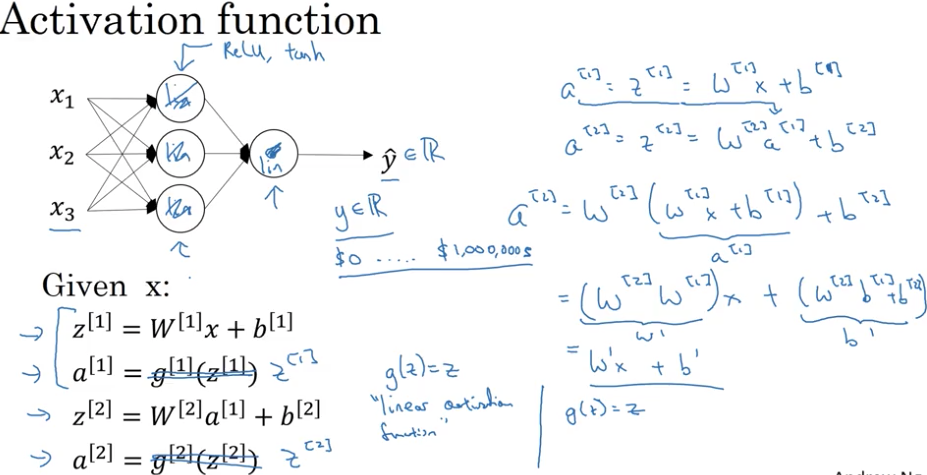 Activation function
ReLU, tanh
x₁
x₂
x₃
lin
ŷ ∈ ℝ
y ∈ ℝ
$0 ..... $1,000,000s
Given x:
z^[1] = W^[1]x + b^[1]
a^[1] = g^[1](z^[1]) z^[1]
z^[2] = W^[2]a^[1] + b^[2]
a^[2] = g^[2](z^[2]) z^[2]
g(z) = z
"linear activation
function"
a^[1] = z^[1] = W^[1]x + b^[1]
a^[2] = z^[2] = W^[2]a^[1] + b^[2]
a^[2] = W^[2](W^[1]x + b^[1]) + b^[2]
a^[1]
= (W^[2]W^[1])x + (W^[2]b^[1] + b^[2])
W' b'
= W'x + b'
g(z) = z